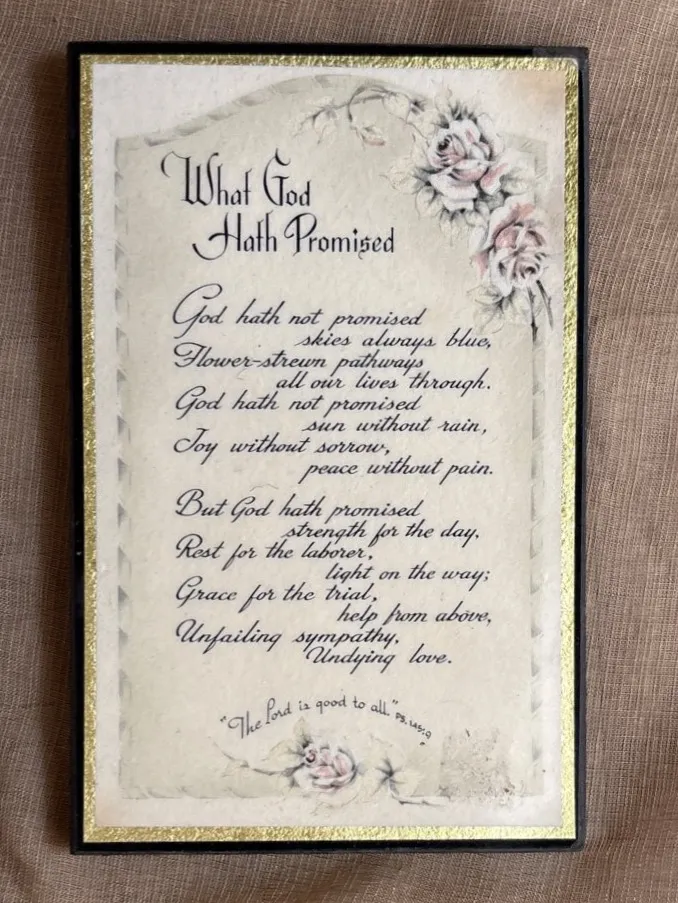 What God
Hath Promised
God hath not promised
skies always blue,
Flower-strewn pathways
all our lives through.
God hath not promised
sun without rain,
Joy without sorrow,
peace without pain.
But God hath promised
strength for the day,
Rest for the laborer,
light on the way;
Grace for the trial,
help from above,
Unfailing sympathy,
Undying love.
"The Lord is good to all." PS. 145:9